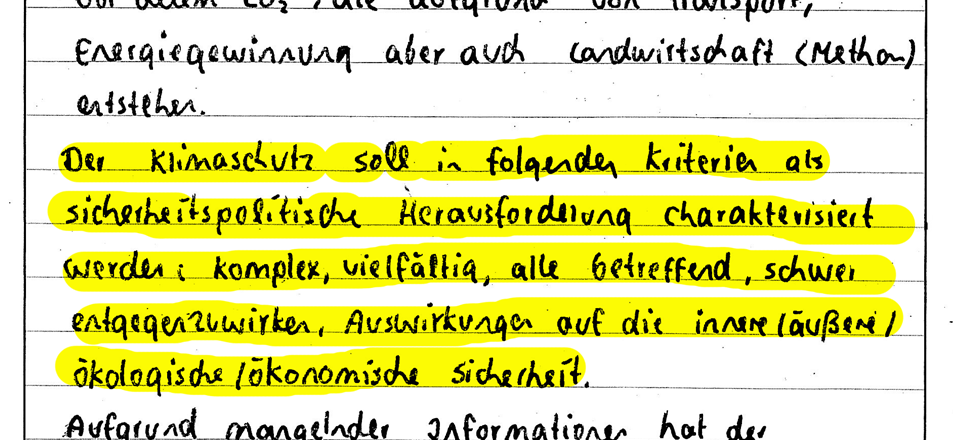 vor allem CO₂, die aufgrund von Transport,
Energiegewinnung aber auch Landwirtschaft (Methan)
entstehen.
Der Klimaschutz soll in folgenden Kriterien als
sicherheitspolitische Herausforderung charakterisiert
werden: komplex, vielfältig, alle betreffend, schwer
entgegenzuwirken, Auswirkungen auf die innere/äußere/
ökologische/ökonomische Sicherheit.
Aufgrund mangelnder Informationen hat der